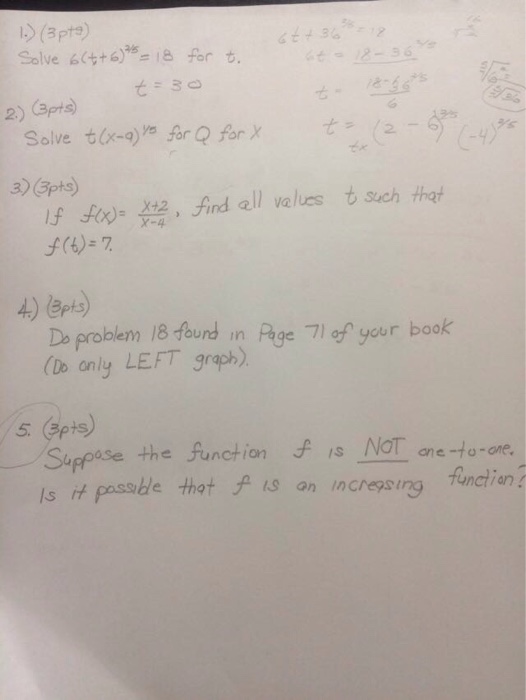 1.) (3pts)
Solve 6(t+6)^{3/5} = 18 for t.
t = 30
6t + 36^{3/5} = 18
6t = 18 - 36
t =
6
t = (2 - 6) (-4)^{3/5}
2.) (3pts)
Solve t(x-a)^{1/5} for Q for X
3.) (3pts)
If f(x) = \frac{x+2}{x-4}, find all values t such that
f(t) = 7.
4.) (3pts)
Do problem 18 found in Page 71 of your book
(Do only LEFT graph).
5. (3pts)
Suppose the function f is NOT one-to-one.
Is it possible that f is an increasing function?